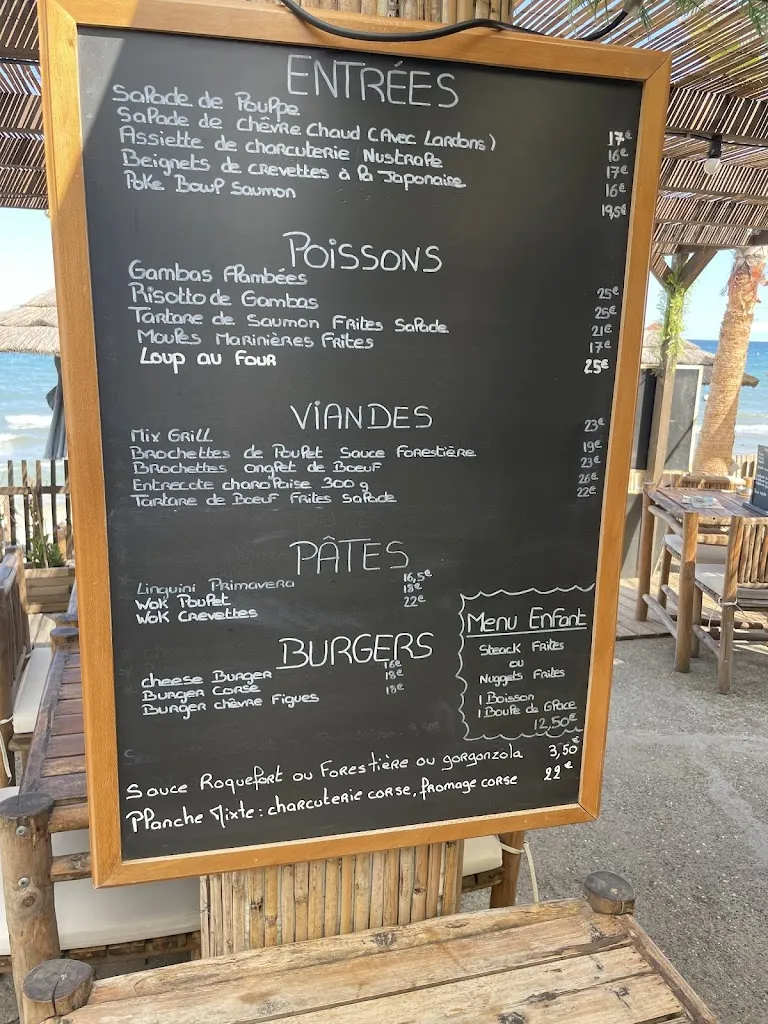 ENTRÉES
Salade de Poulpe 17€
Salade de chèvre chaud (Avec Lardons) 16€
Assiette de charcuterie Nustrale 17€
Beignets de crevettes à la Japonaise 16€
Poke Bowl Saumon 19,5€
POISSONS
Gambas Flambées 25€
Risotto de Gambas 25€
Tartare de Saumon Frites Salade 21€
Moules Marinières Frites 17€
Loup au Four 25€
VIANDES
Mix Grill 23€
Brochettes de Poulet Sauce Forestière 19€
Brochettes onglet de Boeuf 23€
Entrecote charolaise 300 g 26€
Tartare de Boeuf Frites Salade 22€
PÂTES
Linguini Primavera 16,5€
Wok Poulet 18€
Wok Crevettes 22€
BURGERS
cheese Burger 16€
Burger Corse 18€
Burger chèvre Figues 18€
Menu Enfant
Steack Frites
ou
Nuggets Frites
1 Boisson
1 Boule de Glace
12,50€
Sauce Roquefort ou Forestière ou gorgonzola 3,50€
Planche Mixte : charcuterie corse, fromage corse 22€